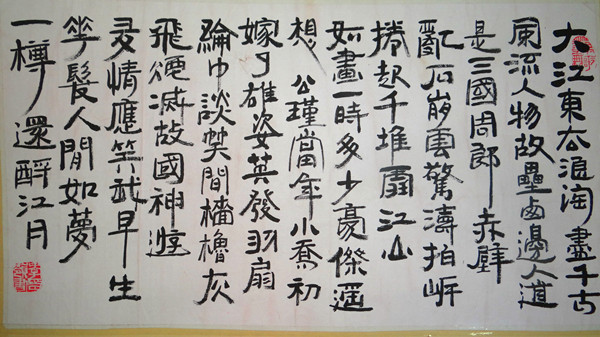 大江東去浪淘盡千古
風流人物故壘西邊人道
是三國周郎赤壁
亂石崩雲驚濤拍岸
捲起千堆雪江山
如畫一時多少豪傑遥
想公瑾當年小喬初
嫁了雄姿英發羽扇
綸巾談笑間檣櫓灰
飛煙滅故國神遊
多情應笑我早生
華髮人間如夢
一樽還酹江月